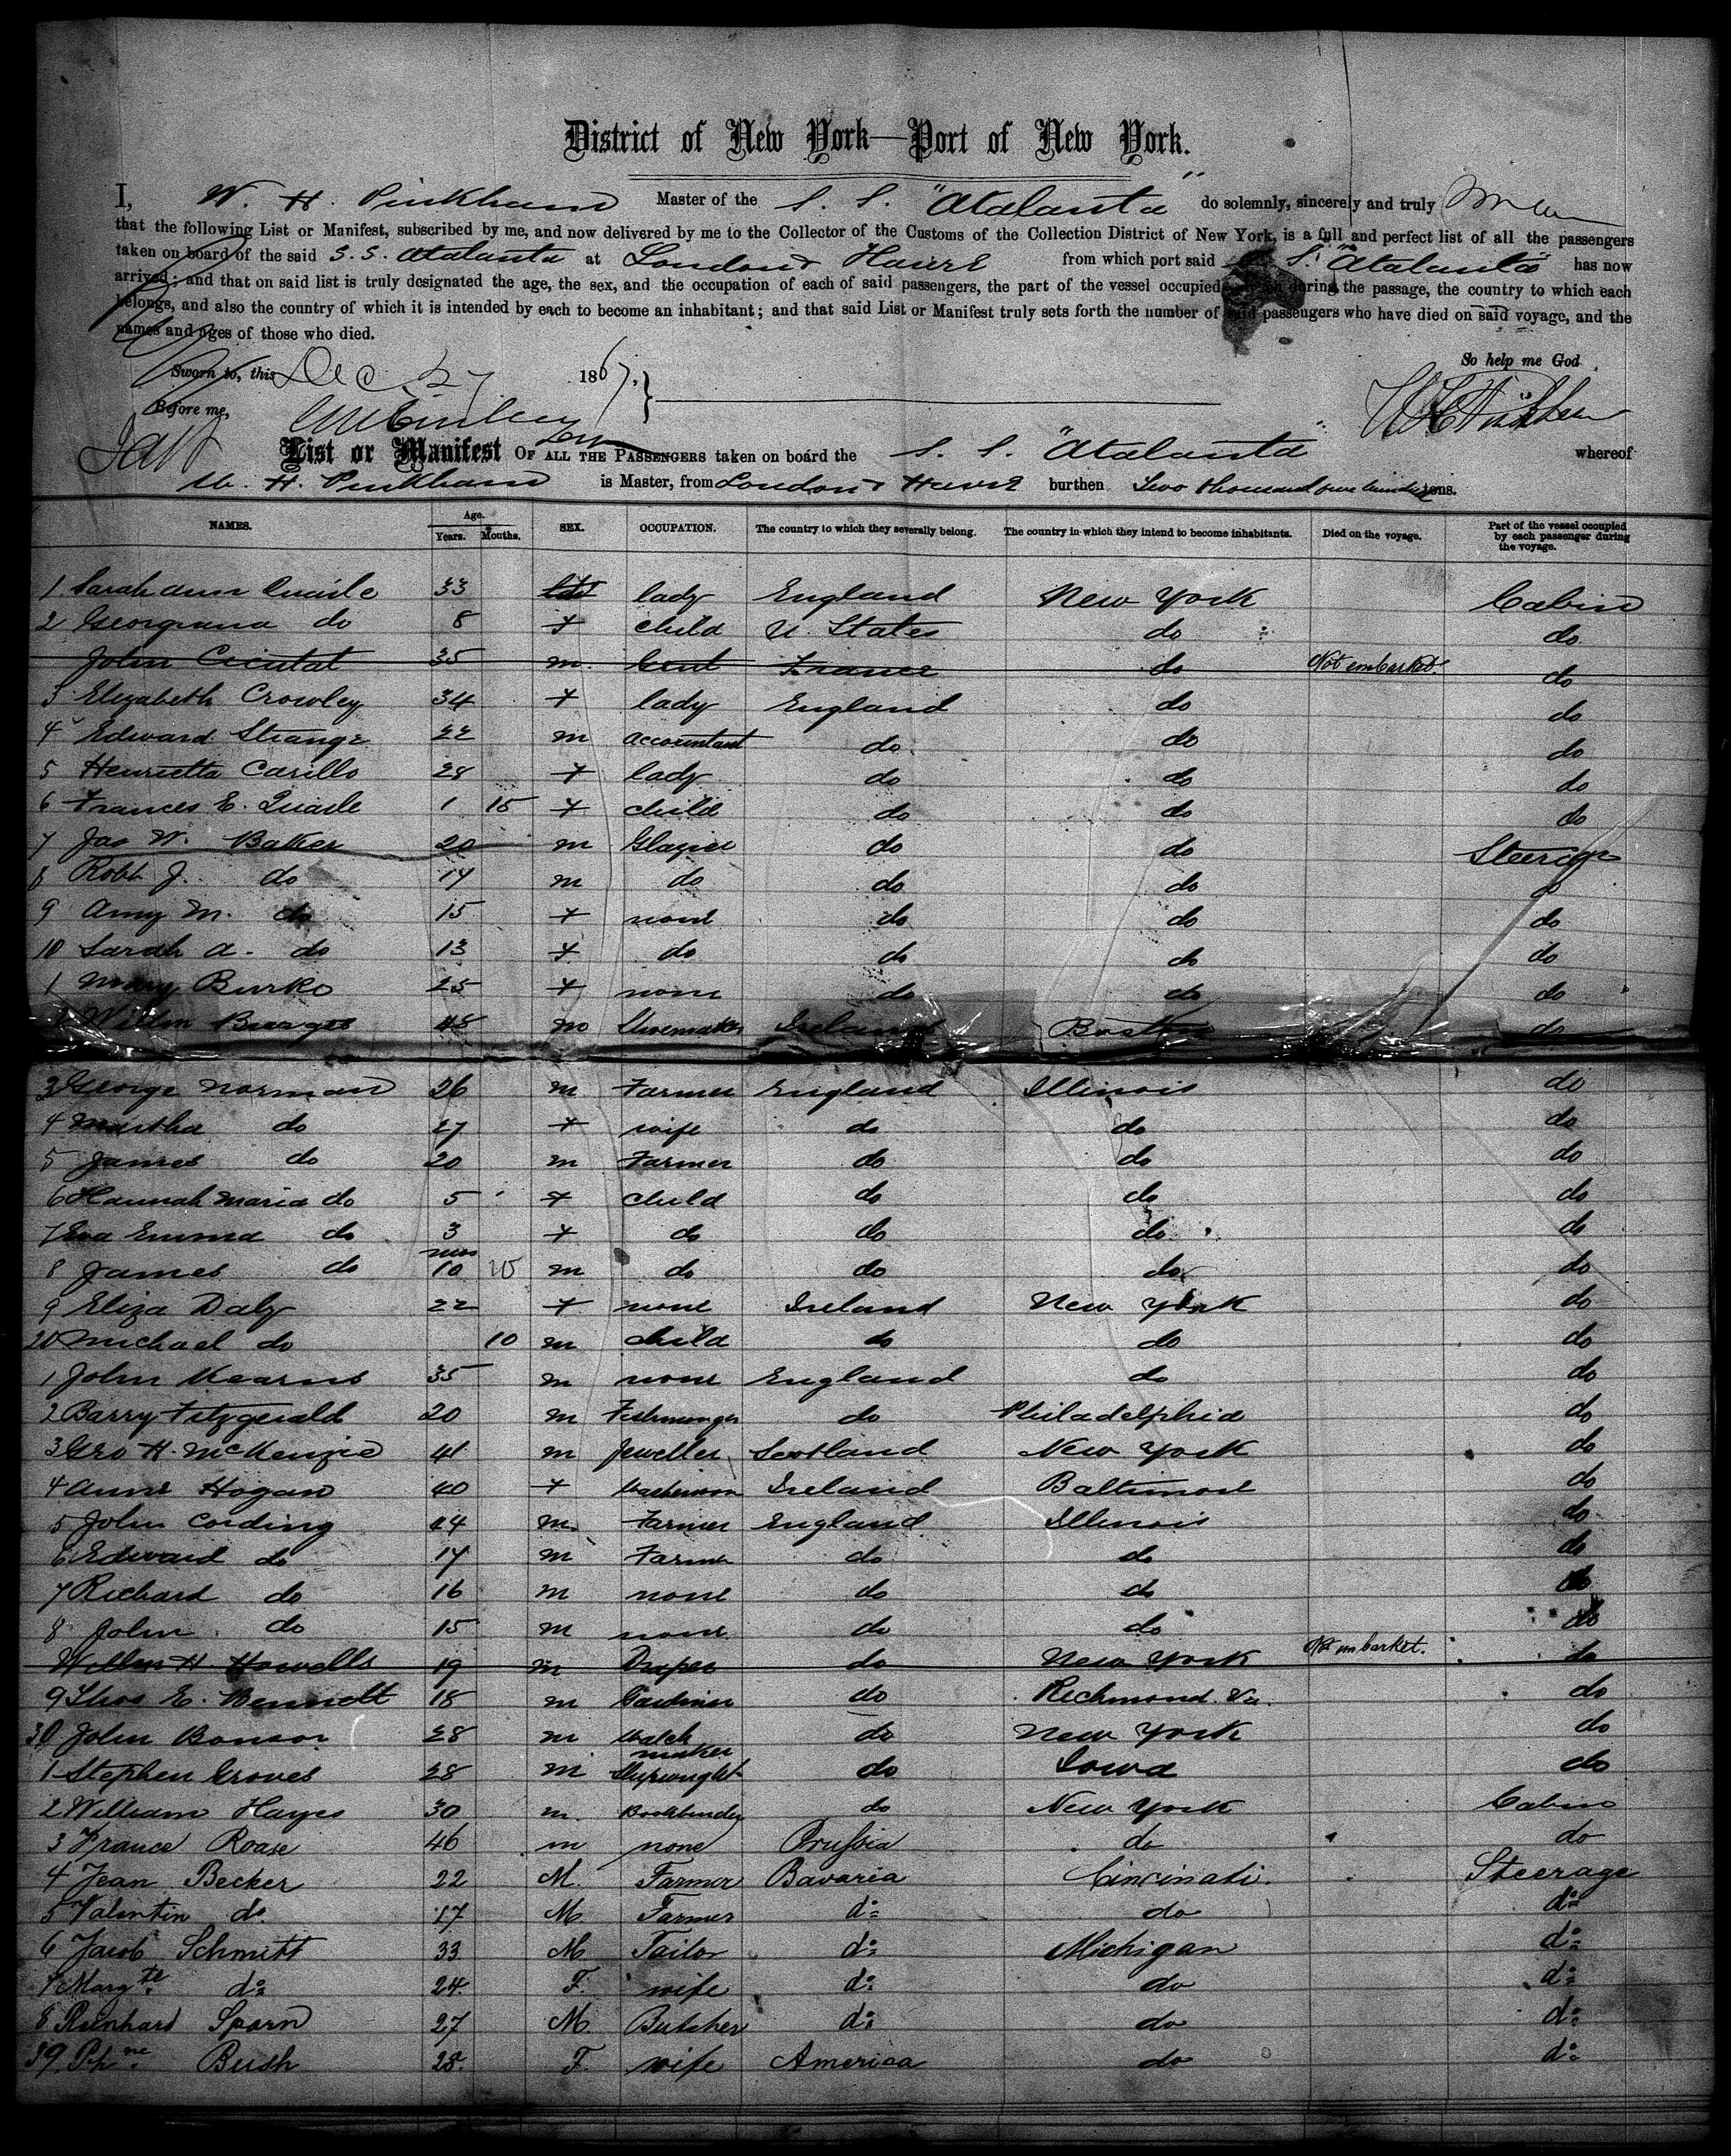 District of New York—Port of New York.
I, W. H. Pinkham Master of the S. S. "Atalanta" do solemnly, sincerely and truly
that the following List or Manifest, subscribed by me, and now delivered by me to the Collector of the Customs of the Collection District of New York, is a full and perfect list of all the passengers
taken on board of the said S. S. Atalanta at London & Havre from which port said S. S. "Atalanta" has now
arrived; and that on said list is truly designated the age, the sex, and the occupation of each of said passengers, the part of the vessel occupied during the passage, the country to which each
belongs, and also the country of which it is intended by each to become an inhabitant; and that said List or Manifest truly sets forth the number of said passengers who have died on said voyage, and the
names and ages of those who died.
So help me God
Sworn to, this Dec 27 1867.
Before me,
List or Manifest OF ALL THE PASSENGERS taken on board the S. S. "Atalanta" whereof
W. H. Pinkham is Master, from London & Havre burthen Two thousand five hundred tons.
NAMES. Age. Years. Months. SEX. OCCUPATION. The country to which they severally belong. The country in which they intend to become inhabitants. Died on the voyage. Part of the vessel occupied by each passenger during the voyage.
1 Sarah Ann Quaile 33 lady England New York Cabin
2 Georgiana do 8 f child U. States do do
John Cicutat 35 m. Gent France do Not embarked. do
3 Elizabeth Crowley 34 f lady England do do
4 Edward Strange 22 m accountant do do do
5 Henrietta Carillo 28 f lady do do do
6 Frances E. Quaile 1 15 f child do do do
7 Jas W. Baker 20 m Glazier do do Steerage
8 Robt J. do 17 m do do do do
9 Amy M. do 15 f none do do do
10 Sarah A. do 13 f do do do do
1 Mary Burke 25 f none do do do
2 Willm Burges 48 m Shoemaker Ireland Boston do
3 George Norman 26 m Farmer England Illinois do
4 Martha do 27 f wife do do do
5 James do 20 m Farmer do do do
6 Hannah Maria do 5 f child do do do
7 Eva Emma do 3 f do do do do
8 James do mos 10 m do do do do
9 Eliza Daly 22 f none Ireland New York do
20 Michael do 10 m child do do do
1 John Kearns 35 m none England do do
2 Barry Fitzgerald 20 m Fishmonger do Philadelphia do
3 Geo H. McKenzie 41 m Jeweller Scotland New York do
4 Anne Hogan 40 f Washerwom Ireland Baltimore do
5 John Cording 44 m. Farmer England Illinois do
6 Edward do 17 m Farmer do do do
7 Richard do 16 m none do do do
8 John do 15 m none do do do
Willm H. Howells 19 m Draper do New York Not embarket. do
9 Thos E. Bennett 18 m Gardiner do Richmond Va. do
30 John Bonsor 28 m Watch maker do New York do
1 Stephen Groves 28 m Shipwright do Iowa do
2 William Hayes 30 m Bookbinder do New York Cabin
3 France Roase 46 m none Prussia do do
4 Jean Becker 22 M. Farmer Bavaria Cincinati. Steerage
5 Valentin do. 17 M. Farmer do do do
6 Jacob Schmitt 33 M Tailor do Michigan do
7 Margte do 24. F. wife do do do
8 Reinhard Sporn 27 M. Butcher do do do
39 Phne Bush 28. F. wife America do do